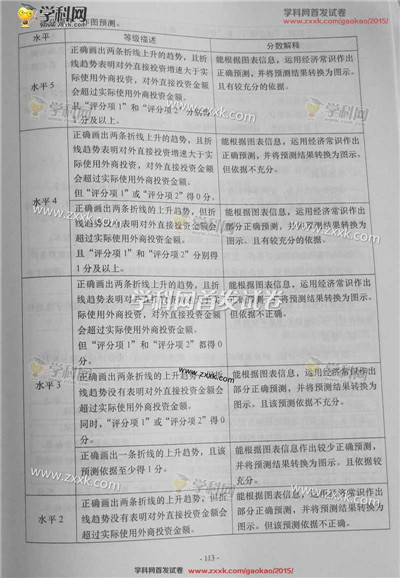 学科网
www.zxxk.com
学科网首发试卷
www.zxxk.com/gaokao/2015/
作图预测。
水平
等级描述
分数解释
水平 5
正确画出两条折线上升的趋势，且折
线趋势表明对外直接投资增速大于实
际使用外商投资，对外直接投资金额
会超过实际使用外商投资金额。
且“评分项 1”和“评分项 2”分别得
1 分及以上。
能根据图表信息，运用经济常识作出
正确预测，并将预测结果转换为图示。
且有较充分的依据。
水平 4
正确画出两条折线上升的趋势，且折
线趋势表明对外直接投资增速大于实
际使用外商投资，对外直接投资金额
会超过实际使用外商投资金额。
但“评分项 1”或“评分项 2”得 0 分。
能根据图表信息，运用经济常识作出
正确预测，并将预测结果转换为图示。
但依据不充分。
正确画出两条折线的上升趋势，但折
线趋势没有表明对外直接投资金额会
超过实际使用外商投资金额。
且“评分项 1”和“评分项 2”分别得
1 分及以上。
能根据图表信息，运用经济常识作出
部分正确预测，并将预测结果转换为
图示。且有较充分的依据。
水平 3
正确画出两条折线的上升趋势，且折
线趋势表明对外直接投资增速大于实
际使用外商投资，对外直接投资金额
会超过实际使用外商投资金额。
但“评分项 1”和“评分项 2”都得 0
分。
能根据图表信息，运用经济常识作出
正确预测，并将预测结果转换为图示。
但依据不正确。
正确画出两条折线的上升趋势，但折
线趋势没有表明对外直接投资金额会
超过实际使用外商投资金额。
同时，“评分项 1”或“评分项 2”得 0
分。
能根据图表信息，运用经济常识作出
部分正确预测，并将预测结果转换为
图示。且该预测依据不充分。
正确画出一条折线的上升趋势，且该
预测依据至少得 1 分。
能根据图表信息作出较少正确预测，
并将预测结果转换为图示。且依据较
充分。
水平 2
正确画出两条折线的上升趋势，但折
线趋势没有表明对外直接投资金额会
超过实际使用外商投资金额。
能根据图表信息，运用经济常识作出
部分正确预测，并将预测结果转换为
图示。但该预测依据不正确。
- 113 -
学科网首发试卷
www.zxxk.com/gaokao/2015/